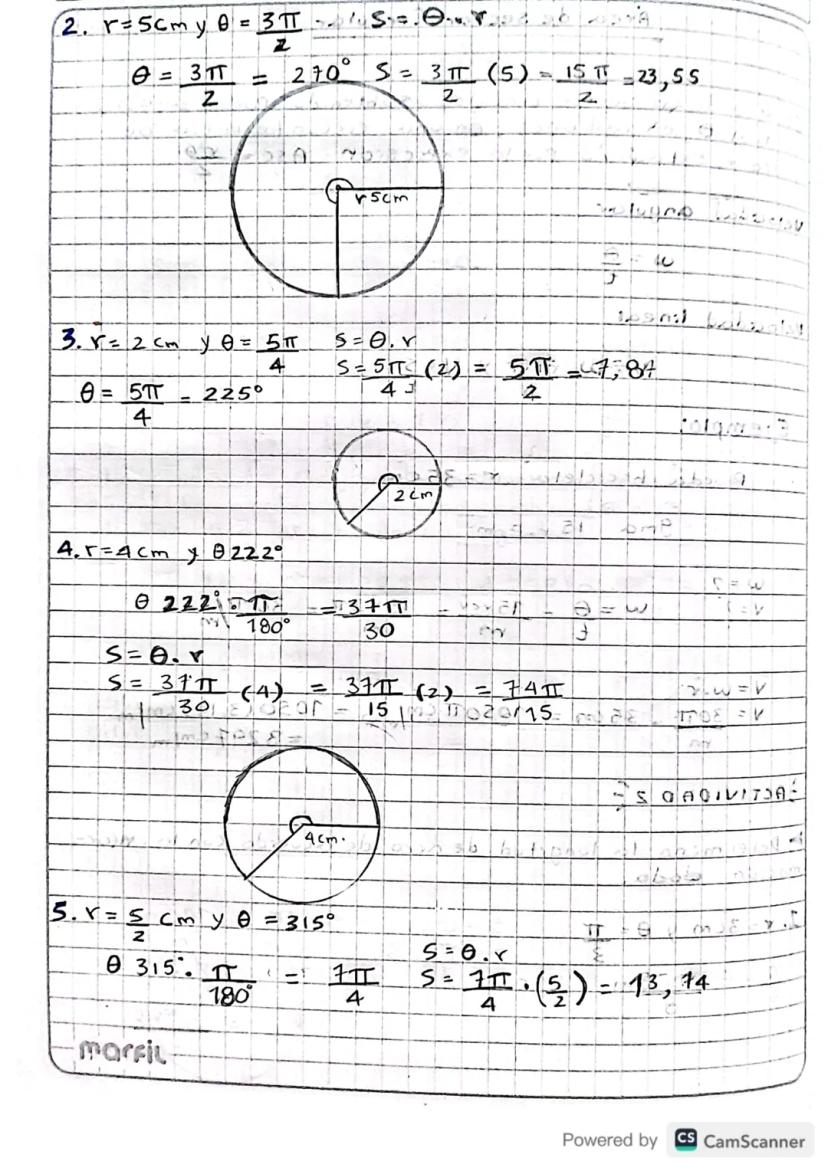 2. r = 5cm y θ = 3π/2 S = θ . r
θ = 3π/2 = 270° S = 3π/2 (5) = 15π/2 = 23,55
r 5cm
3. r = 2 cm y θ = 5π/4 S = θ . r
S = 5π/4 (2) = 5π/2 = 7,87
θ = 5π/4 = 225°
2 cm
4. r = 4 cm y θ 222°
θ 222° . π/180° = 37π/30
S = θ . r
S = 37π/30 (4) = 37π/15 (2) = 74π/15
4 cm.
5. r = 5/2 cm y θ = 315°
S = θ . r
θ 315° . π/180° = 7π/4 S = 7π/4 . (5/2) = 13,74
marfil
Powered by CS CamScanner